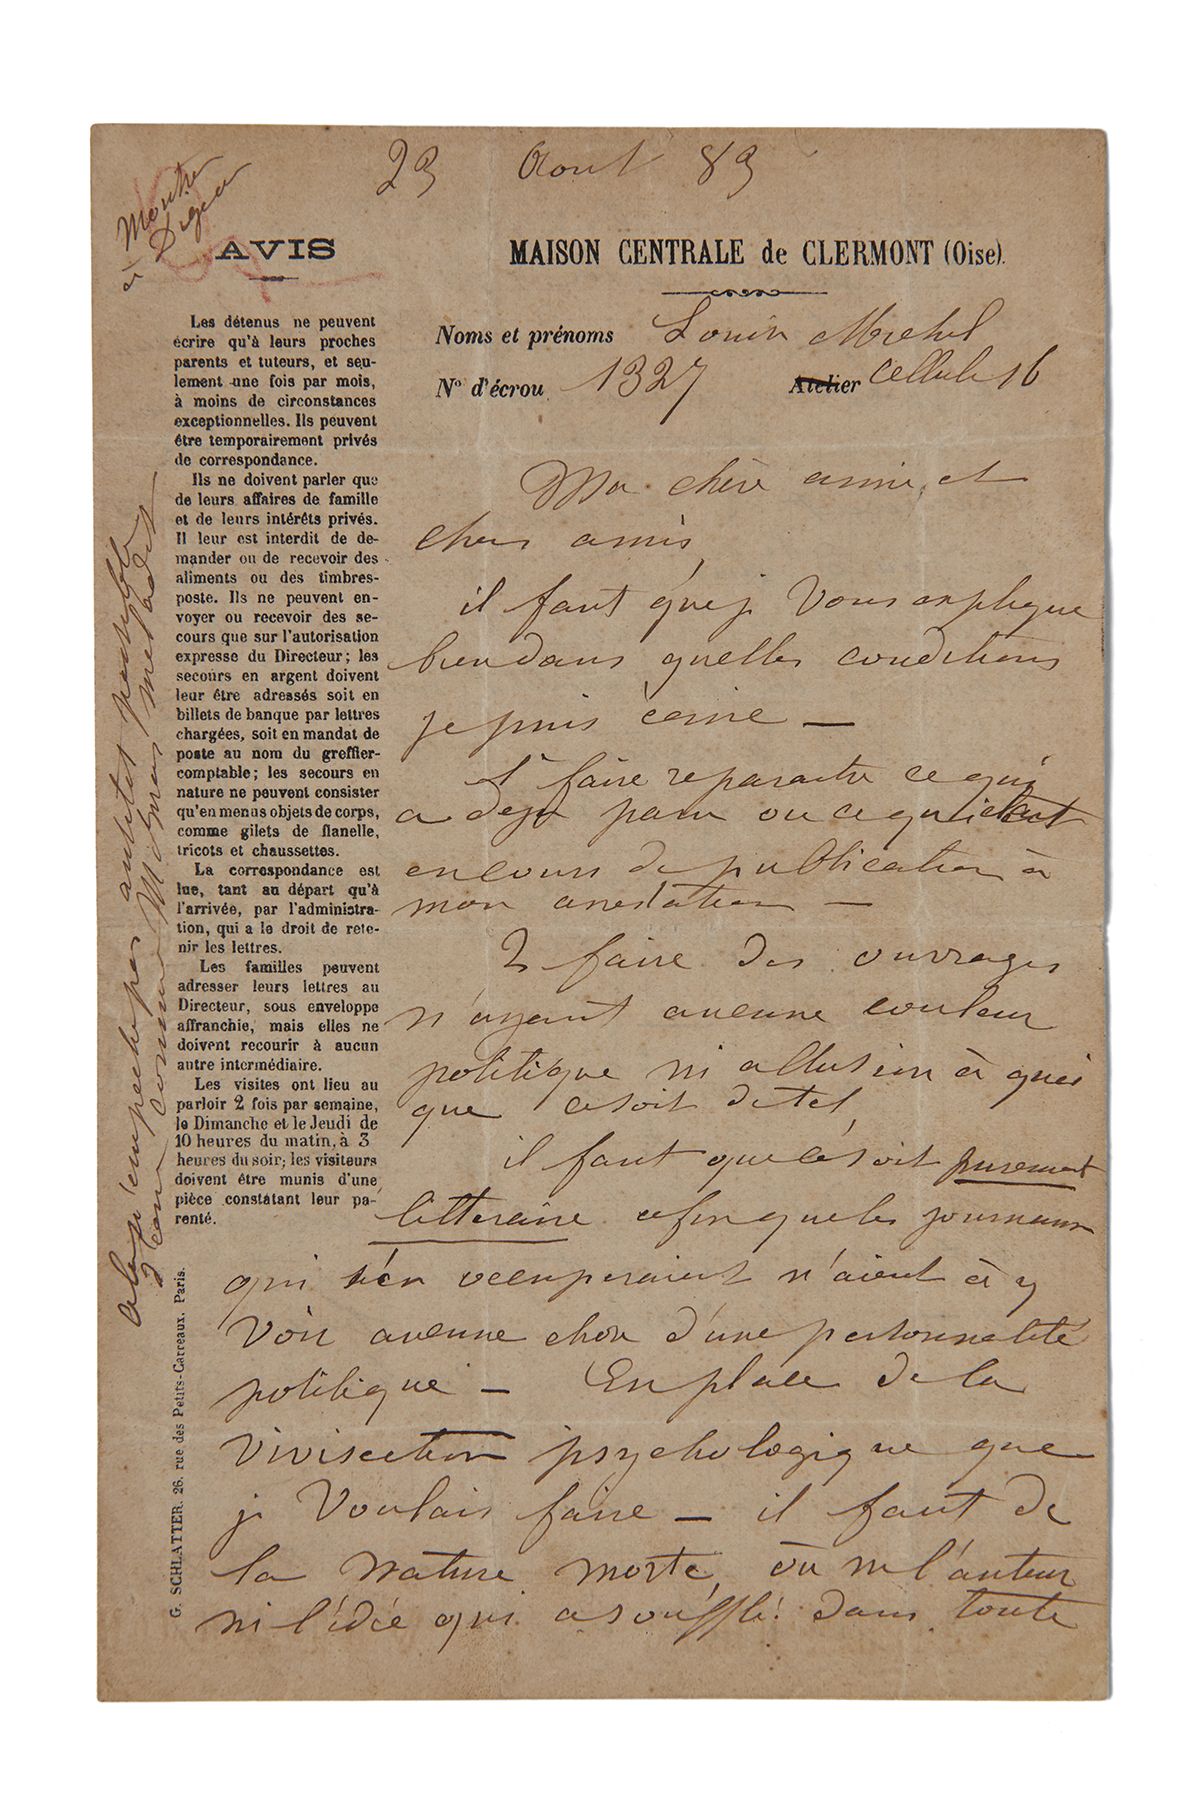 23 Aout 83
à Montrer
Digeon
AVIS
Les détenus ne peuvent
écrire qu'à leurs proches
parents et tuteurs, et seu-
lement une fois par mois,
à moins de circonstances
exceptionnelles. Ils peuvent
être temporairement privés
de correspondance.
Ils ne doivent parler que
de leurs affaires de famille
et de leurs intérêts privés.
Il leur est interdit de de-
mander ou de recevoir des
aliments ou des timbres-
poste. Ils ne peuvent en-
voyer ou recevoir des se-
cours que sur l'autorisation
expresse du Directeur; les
secours en argent doivent
leur être adressés soit en
billets de banque par lettres
chargées, soit en mandat de
poste au nom du greffier-
comptable; les secours en
nature ne peuvent consister
qu'en menus objets de corps,
comme gilets de flanelle,
tricots et chaussettes.
La correspondance est
lue, tant au départ qu'à
l'arrivée, par l'administra-
tion, qui a le droit de rete-
nir les lettres.
Les familles peuvent
adresser leurs lettres au
Directeur, sous enveloppe
affranchie, mais elles ne
doivent recourir à aucun
autre intermédiaire.
Les visites ont lieu au
parloir 2 fois par semaine,
le Dimanche et le Jeudi de
10 heures du matin, à 3
heures du soir; les visiteurs
doivent être munis d'une
pièce constatant leur pa-
renté.
G. SCHLATTER, 26, rue des Petits-Carreaux, Paris.
MAISON CENTRALE de CLERMONT (Oise).
Noms et prénoms Louise Michel
N° d'écrou 1327 Atelier Cellule 16
Ma chère amie et
chers amis
il faut que je vous explique
bien dans quelles conditions
je puis écrire —
1° faire reparaitre ce qui
a deja paru ou ce qui etait
en cours de publication à
mon arrestation —
2 faire des ouvrages
n'ayant aucune couleur
politique ni allusion à quoi
que ce soit de tel
il faut que ce soit purement
litteraire afin que les journaux
qui s'en occuperaient n'aient à y
voir aucune chose d'une personnalité
politique — En place de la
vivisection psychologique que
je voulais faire — il faut de
la nature morte, où ni l'auteur
ni l'idée qui a soufflé dans toute